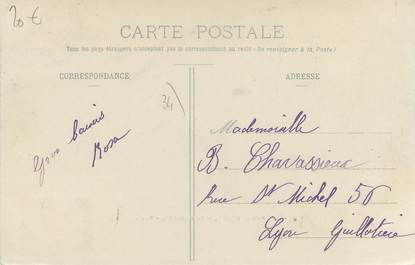 20 €
CARTE POSTALE
Tous les pays étrangers n'acceptent pas la correspondance au recto (Se renseigner à la Poste)
CORRESPONDANCE
ADRESSE
34)
baisers
Rosa
Mademoiselle
B. Chavassieux
Rue St Michel 56
Lyon Guillotière